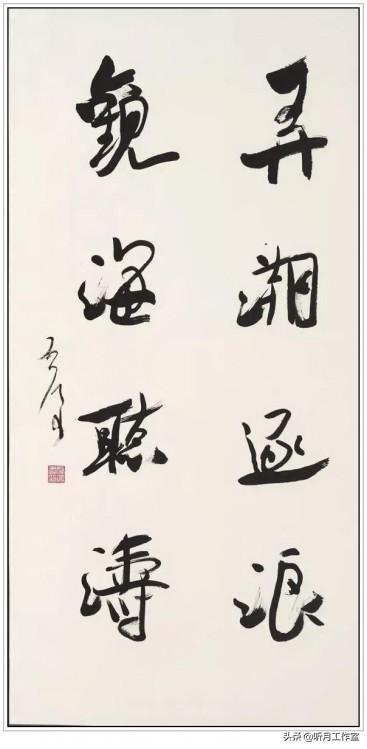 弄潮逐浪
觀海聽濤
头条@听月工作室